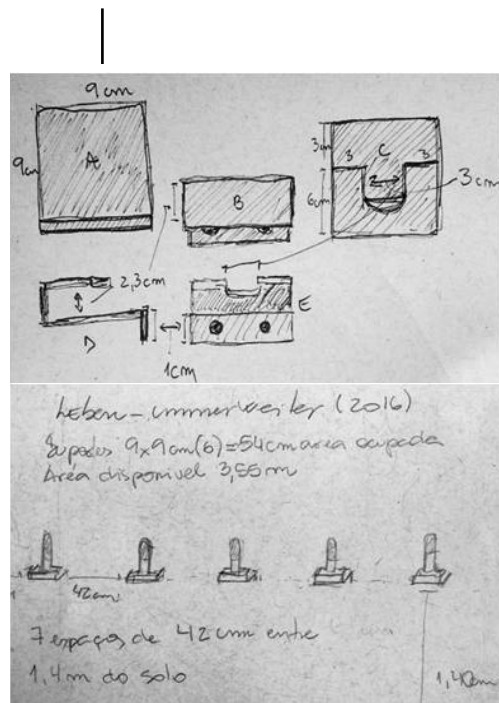 9cm
9cm
A
B
3cm
3
C
3
6cm
3cm
2,3cm
D
E
1cm
Leben - immer weiter (2016)
9x9cm(6)=54cm area ocupada
Área disponível 3,55m
42cm
7 espaços de 42cm entre
1,4m do solo